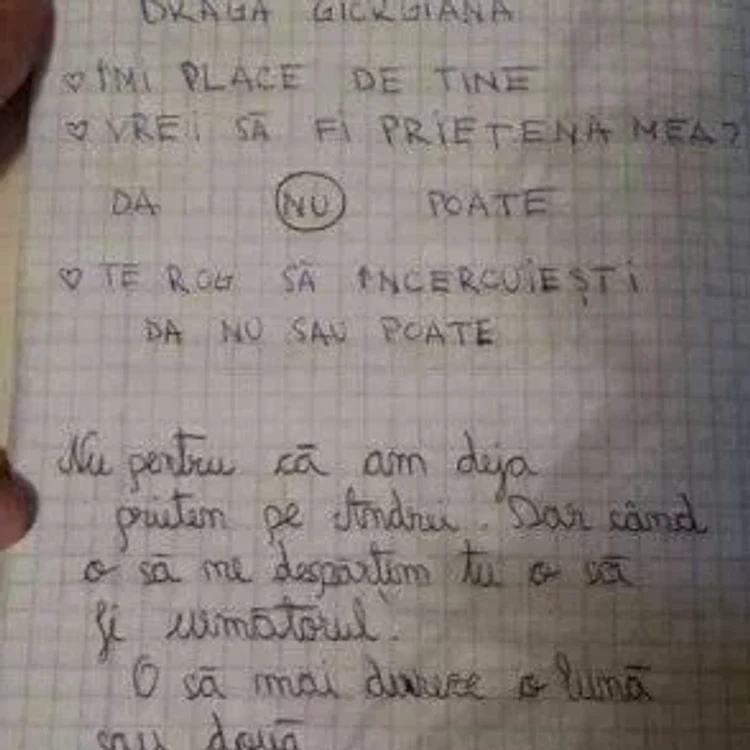 DRAGA GIORGIANA
♡ ÎMI PLACE DE TINE
♡ VREI SĂ FI PRIETENA MEA?
DA NU POATE
♡ TE ROG SĂ ÎNCERCUIEȘTI
DA NU SAU POATE
Nu pentru că am deja
prieten pe Andrei. Dar când
o să ne despărțim tu o să
fi următorul.
O să mai dureze o lună
sau două